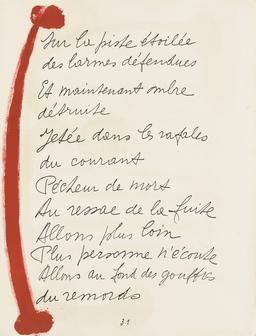 Sur la piste étoilée
des larmes défendues
Et maintenant ombre
détruite
Jetée dans les rafales
du courant
Pêcheur de mort
Au ressac de la fuite
Allons plus loin
Plus personne n'écoute
Allons au fond des gouffres
du remords
31